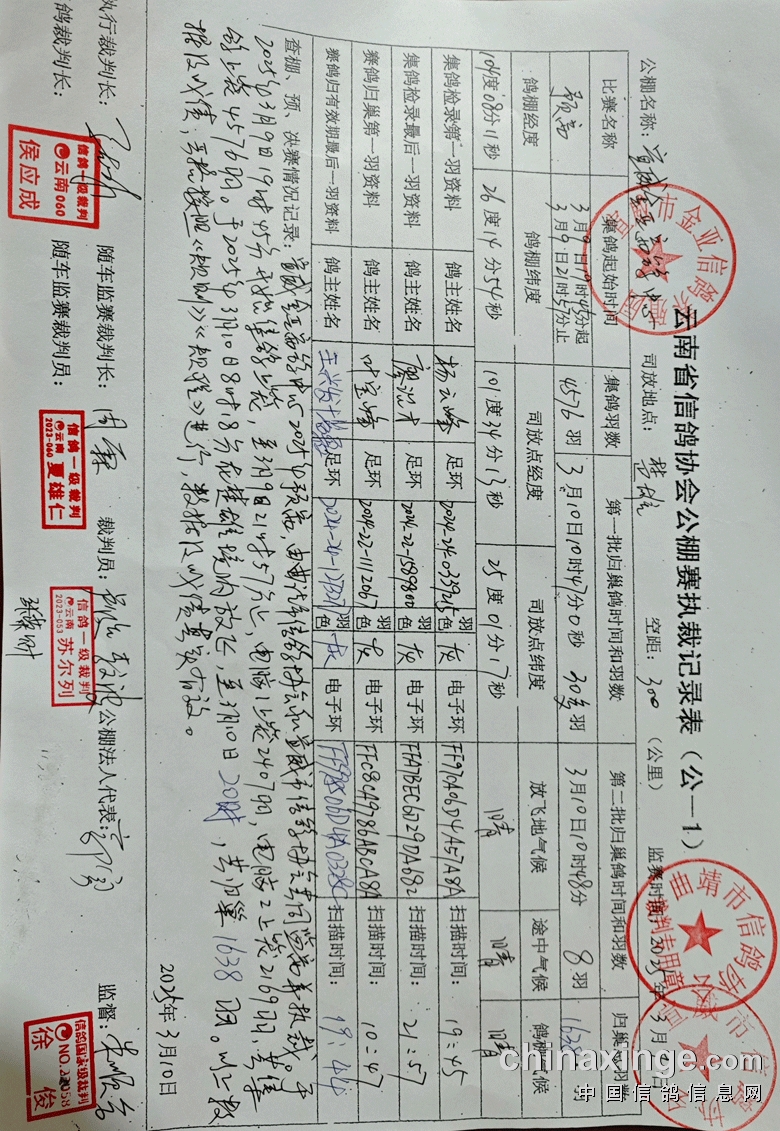 云南省信鸽协会公棚赛执裁记录表（公—1）
公棚名称： 司放地点：楚雄 空距：300（公里） 监赛时间：2025年3月
比赛名称 集鸽起始时间 集鸽羽数 第一批归巢鸽时间和羽数 第二批归巢鸽时间和羽数 归巢总羽数
预赛 3月9日19时45分起 3月9日21时57分止 4576羽 3月10日10时47分0秒 30羽 3月10日10时48分 8羽 1638
鸽棚经度 鸽棚纬度 司放点经度 司放点纬度 放飞地气候 途中气候 鸽棚气候
104度08分11秒 26度14分54秒 101度34分13秒 25度01分17秒 晴 晴 晴
集鸽检录第一羽资料 鸽主姓名 杨云峰 足环 2024-24-0339215 羽色 灰 电子环 FF97CA06D4A57A8A 扫描时间：19：45
集鸽检录最后一羽资料 鸽主姓名 足环 2024-22-1589800 羽色 灰 电子环 FFA7BEC6D29DA682 扫描时间：21：57
赛鸽归巢第一羽资料 鸽主姓名 叶宝峰 足环 2024-22-1112067 羽色 灰 电子环 FFC8CA9786ABCA8A 扫描时间：10：47
赛鸽归有效期最后一羽资料 鸽主姓名 足环 羽色 灰 电子环 扫描时间：19：44
查棚、预、决赛情况记录：宣威金亚赛鸽中心2025年预赛，由曲靖市信鸽协会和宣威市信鸽协会共同监赛并执裁。于
2025年3月9日19时45分开始集鸽上笼，至3月9日21时57分止，电脑1上笼2407羽，电脑2上笼2169羽，共集
鸽上笼4576羽。于2025年3月10日8时8分在楚雄境内放飞，至3月10日20时，共归巢1638羽。以上数
据及成绩，严格按照《规则》《规程》进行，数据及成绩真实有效。
2025年3月10日
执行裁判长： 随车监赛裁判长：周 裁判员： 公棚法人代表： 监督：
鸽裁判长： 随车监赛裁判员：
信鸽一级裁判
云南060
侯应成
信鸽一级裁判
云南
2023-060
夏雄仁
信鸽一级裁判
云南
2023-053
苏尔列
信鸽国家级裁判
徐俊
市金亚信鸽
曲靖市信鸽协会
裁判专用章
chinaxinge.com
中国信鸽信息网